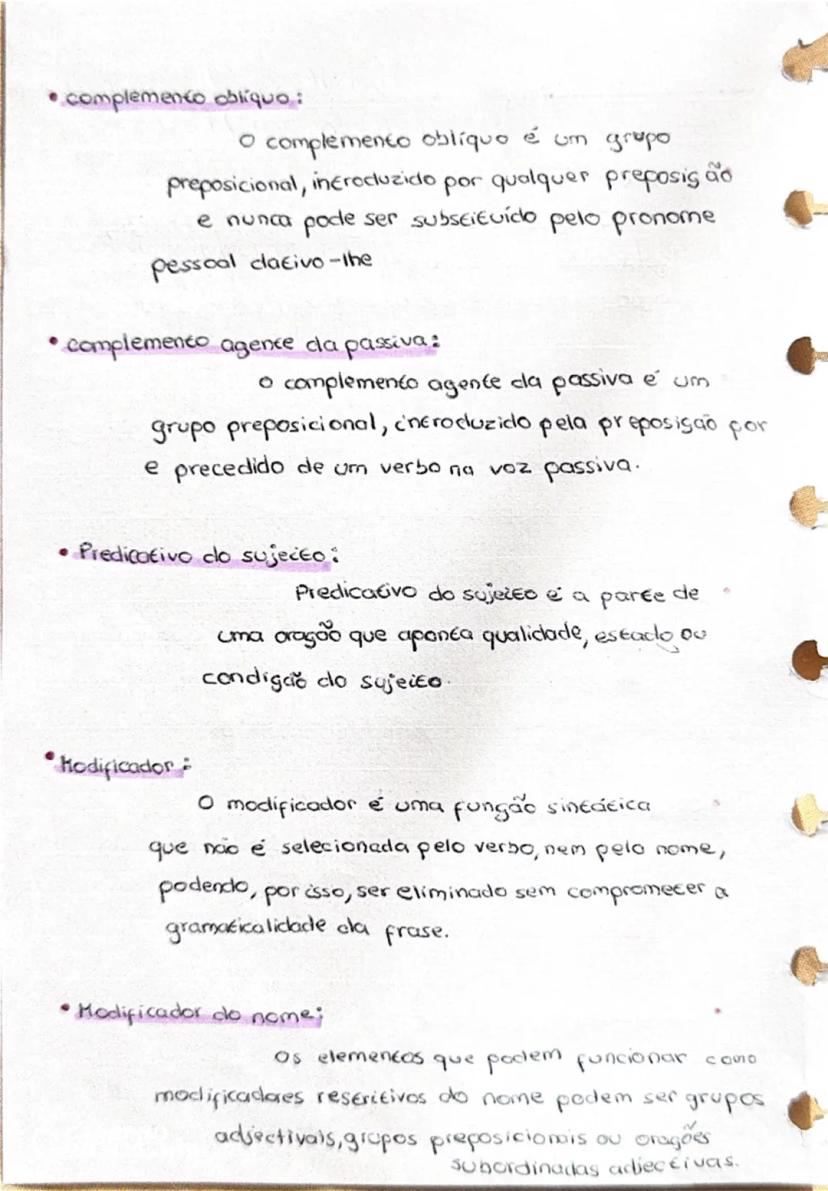 • complemento oblíquo:
O complemento oblíquo é um grupo
preposicional, introduzido por qualquer preposição
e nunca pode ser substituído pelo pronome
pessoal dativo -lhe
• complemento agente da passiva:
O complemento agente da passiva é um
grupo preposicional, introduzido pela preposição por
e precedido de um verbo na voz passiva.
• Predicativo do sujeito:
Predicativo do sujeito é a parte de
uma oração que aponta qualidade, estado ou
condição do sujeito.
• Modificador:
O modificador é uma função sintática
que não é selecionada pelo verbo, nem pelo nome,
podendo, por isso, ser eliminado sem comprometer a
gramaticalidade da frase.
• Modificador do nome:
Os elementos que podem funcionar como
modificadores restritivos do nome podem ser grupos
adjectivais, grupos preposicionais ou orações
subordinadas adjectivas.